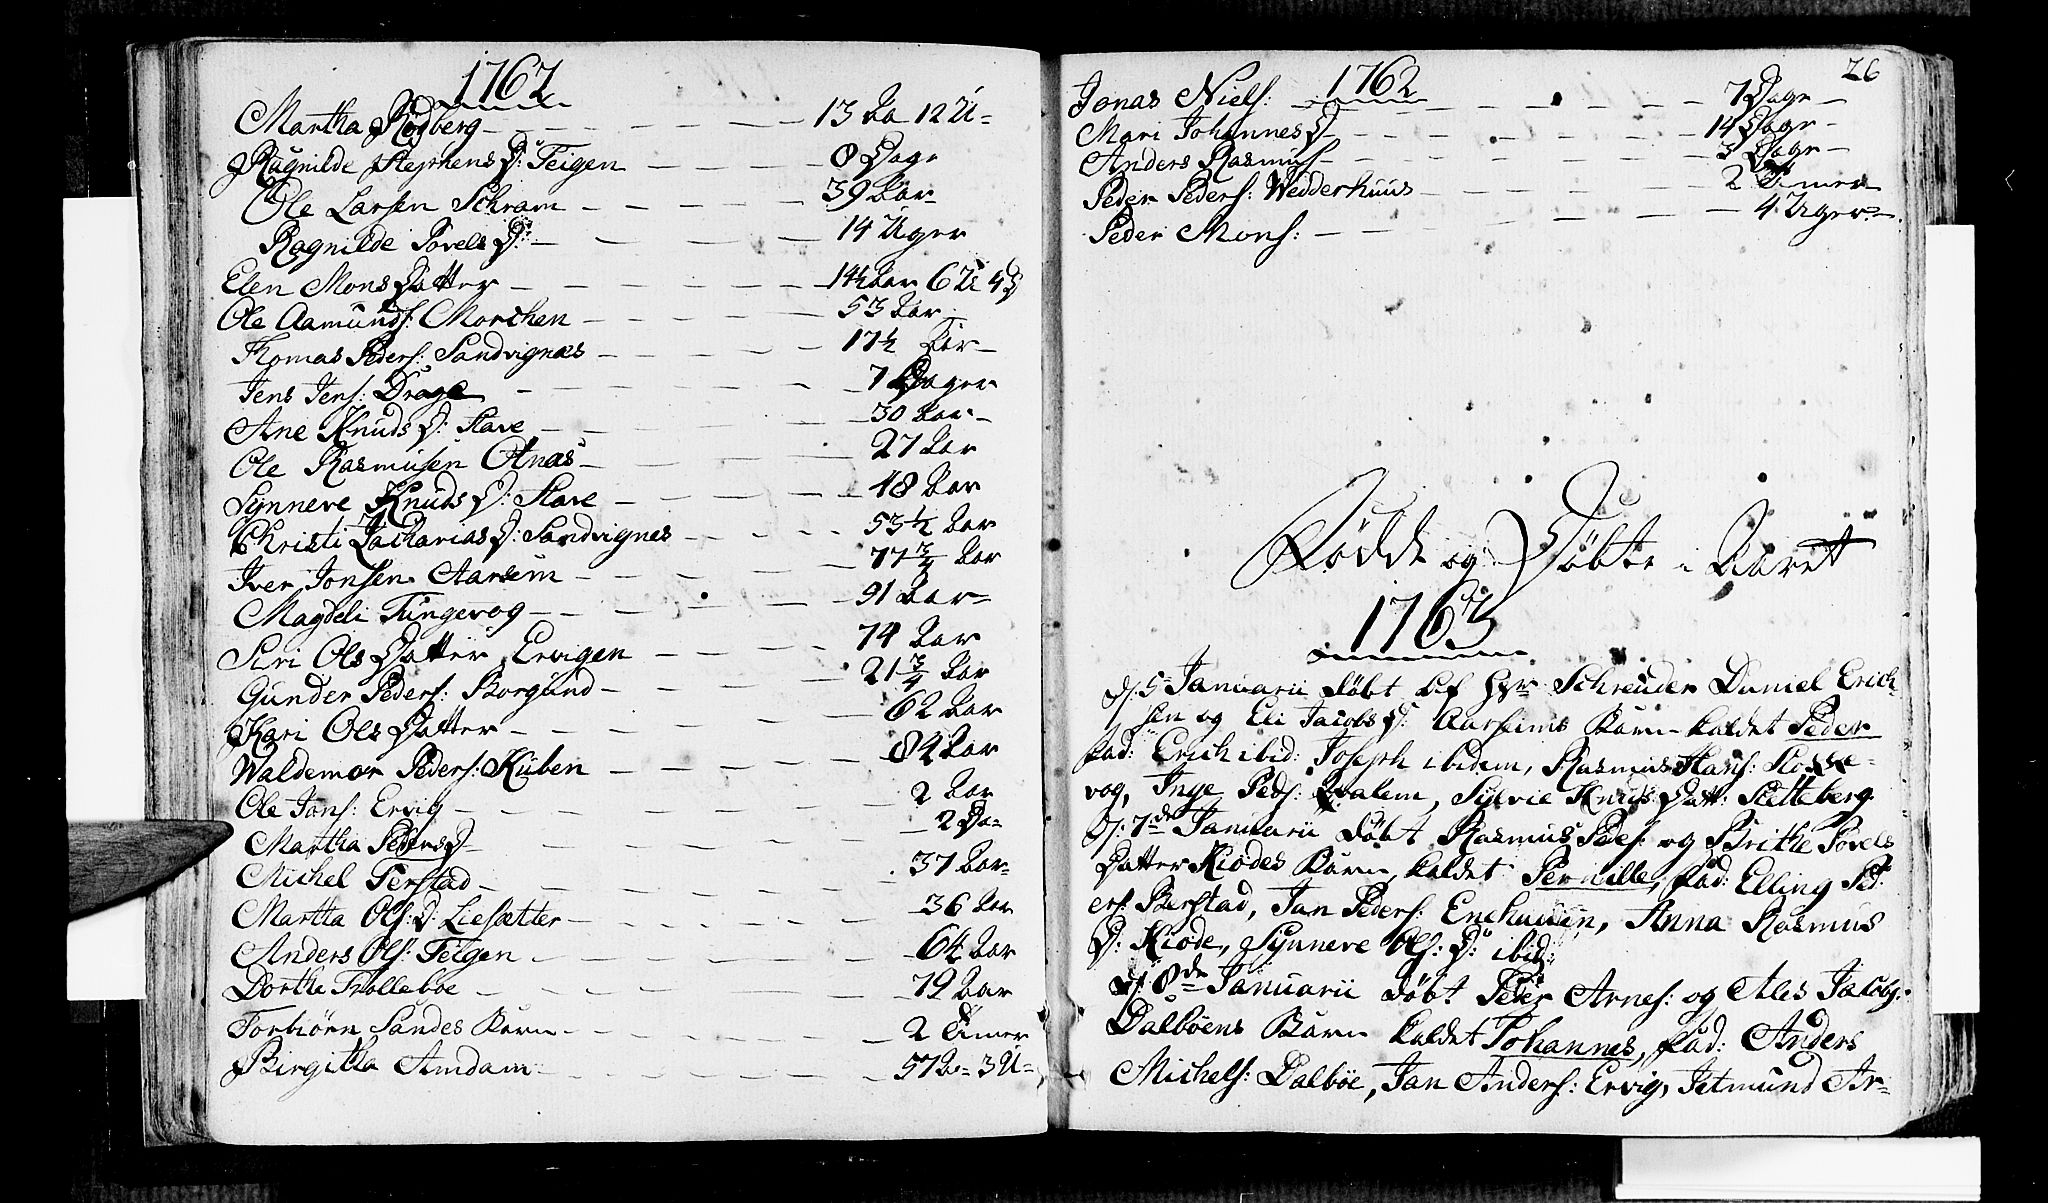 1762
Martha Rødberg 13 Aa 12 U
Ragnilde Stephens D: Teigen 8 Dage
Ole Larsen Schram 39 Aar
Ragnilde Povels D: 14 Uger
Elen Mons Datter 14½ Aar 6 U 4 D
Ole Aamunds: Morchen 53 Aar
Thomas Peders: Sandvignæs 17½ Aar
Jens Jens: Drage 7 Dager
Ane Knuds D: Stave 30 Aar
Ole Rasmusen Otnæs 27 Aar
Synneve Knuds D: Stave 18 Aar
Christi Zacharias D: Sandvignes 53½ Aar
Iver Jonsen Aarsem 77¾ Aar
Magdeli Tungevog 91 Aar
Siri Ols Datter Ervigen 74 Aar
Gunder Peders: Borgund 21¾ Aar
Kari Ols Datter 62 Aar
Waldemar Peders: Kuben 84 Aar
Ole Jans: Ervig 2 Aar
Martha Peders D 2 Da
Michel Ferstad 37 Aar
Martha Ols: D: Liesætter 36 Aar
Anders Ols: Teigen 64 Aar
Dorthe Trolleboe 79 Aar
Torbiørn Sandes Barn 2 Timer
Birgitha Amdam 57 Aa 3 U
26
1762
Jonas Niels: 7 Dage
Mari Johannes D 14 Dage
Anders Rasmus 3 Dage
Peder Peders: Wedderhuus 2 Timer
Peder Mons: 4 Uger
Fødde og Døbte i Aaret
1763
D. 5 Januarii døbt af Hr Schreuder Daniel Erich
sen og Eli Jacobs D: Aarseims Barn kaldet Peder
fad: Erich ibid: Joseph ibidem, Rasmus Hans: Slosse-
vog, Inge Peds: Qvalem, Sylvie Knuds Datt: Stetteberg
D: 7de Januarii døbt Rasmus Peds: og Brithe Povels
Datter Kiødes Barn, kaldet Pernille, fad: Elling Ped
ers: Berstad, Jan Peders: Enchuusen, Anna Rasmus
D: Kiøde, Synneve Ols: D: ibid:
D: 8de Januarii døbt Peder Arnes: og Ales Jakobs:
Dalbøens Barn kaldet Johannes, fad: Anders
Michels: Dalbøe, Jan Anders: Ervig, Jetmund Ar-